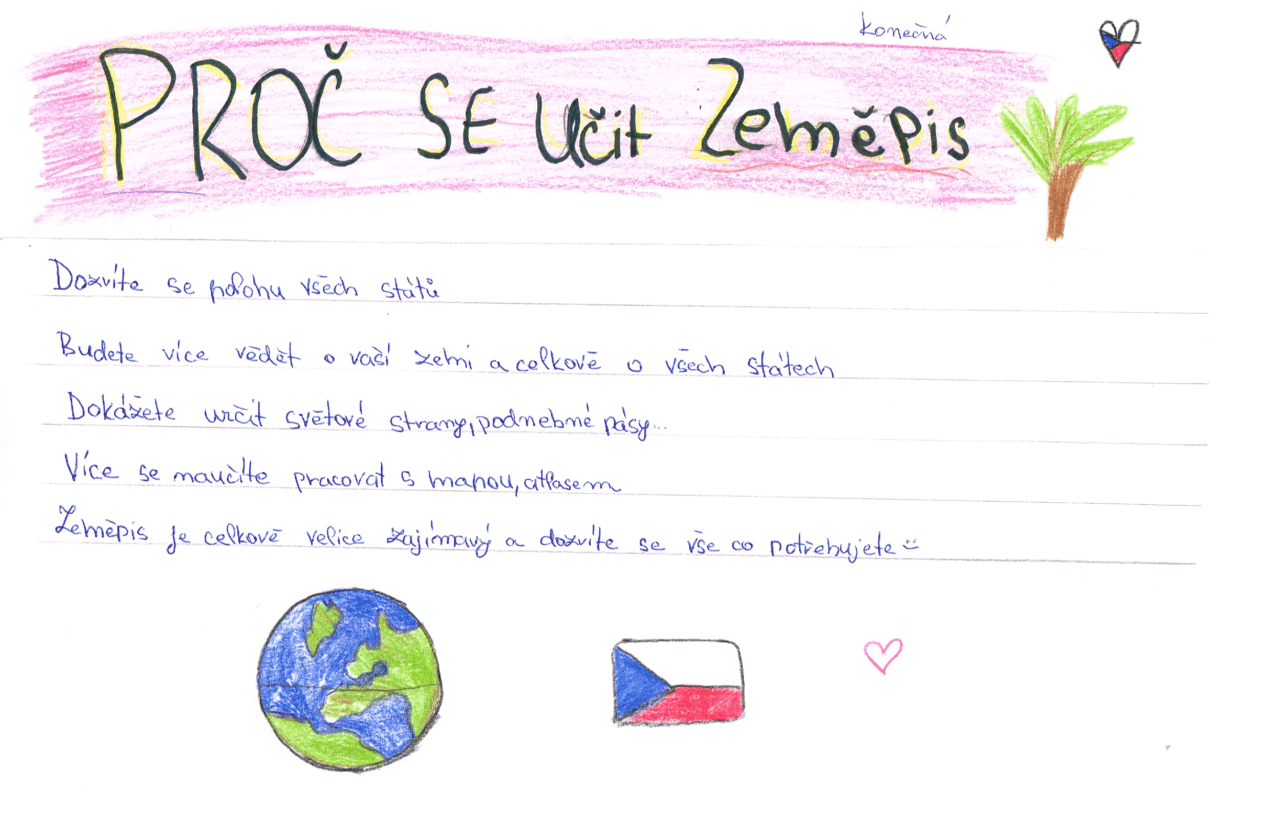 Konečná
PROČ SE Učit Zeměpis
Dozvíte se polohu všech států
Budete více vědět o vaší zemi a celkově o všech státech
Dokážete určit světové strany, podnebné pásy...
Více se naučíte pracovat s mapou, atlasem
Zeměpis je celkově velice zajímavý a dozvíte se vše co potřebujete